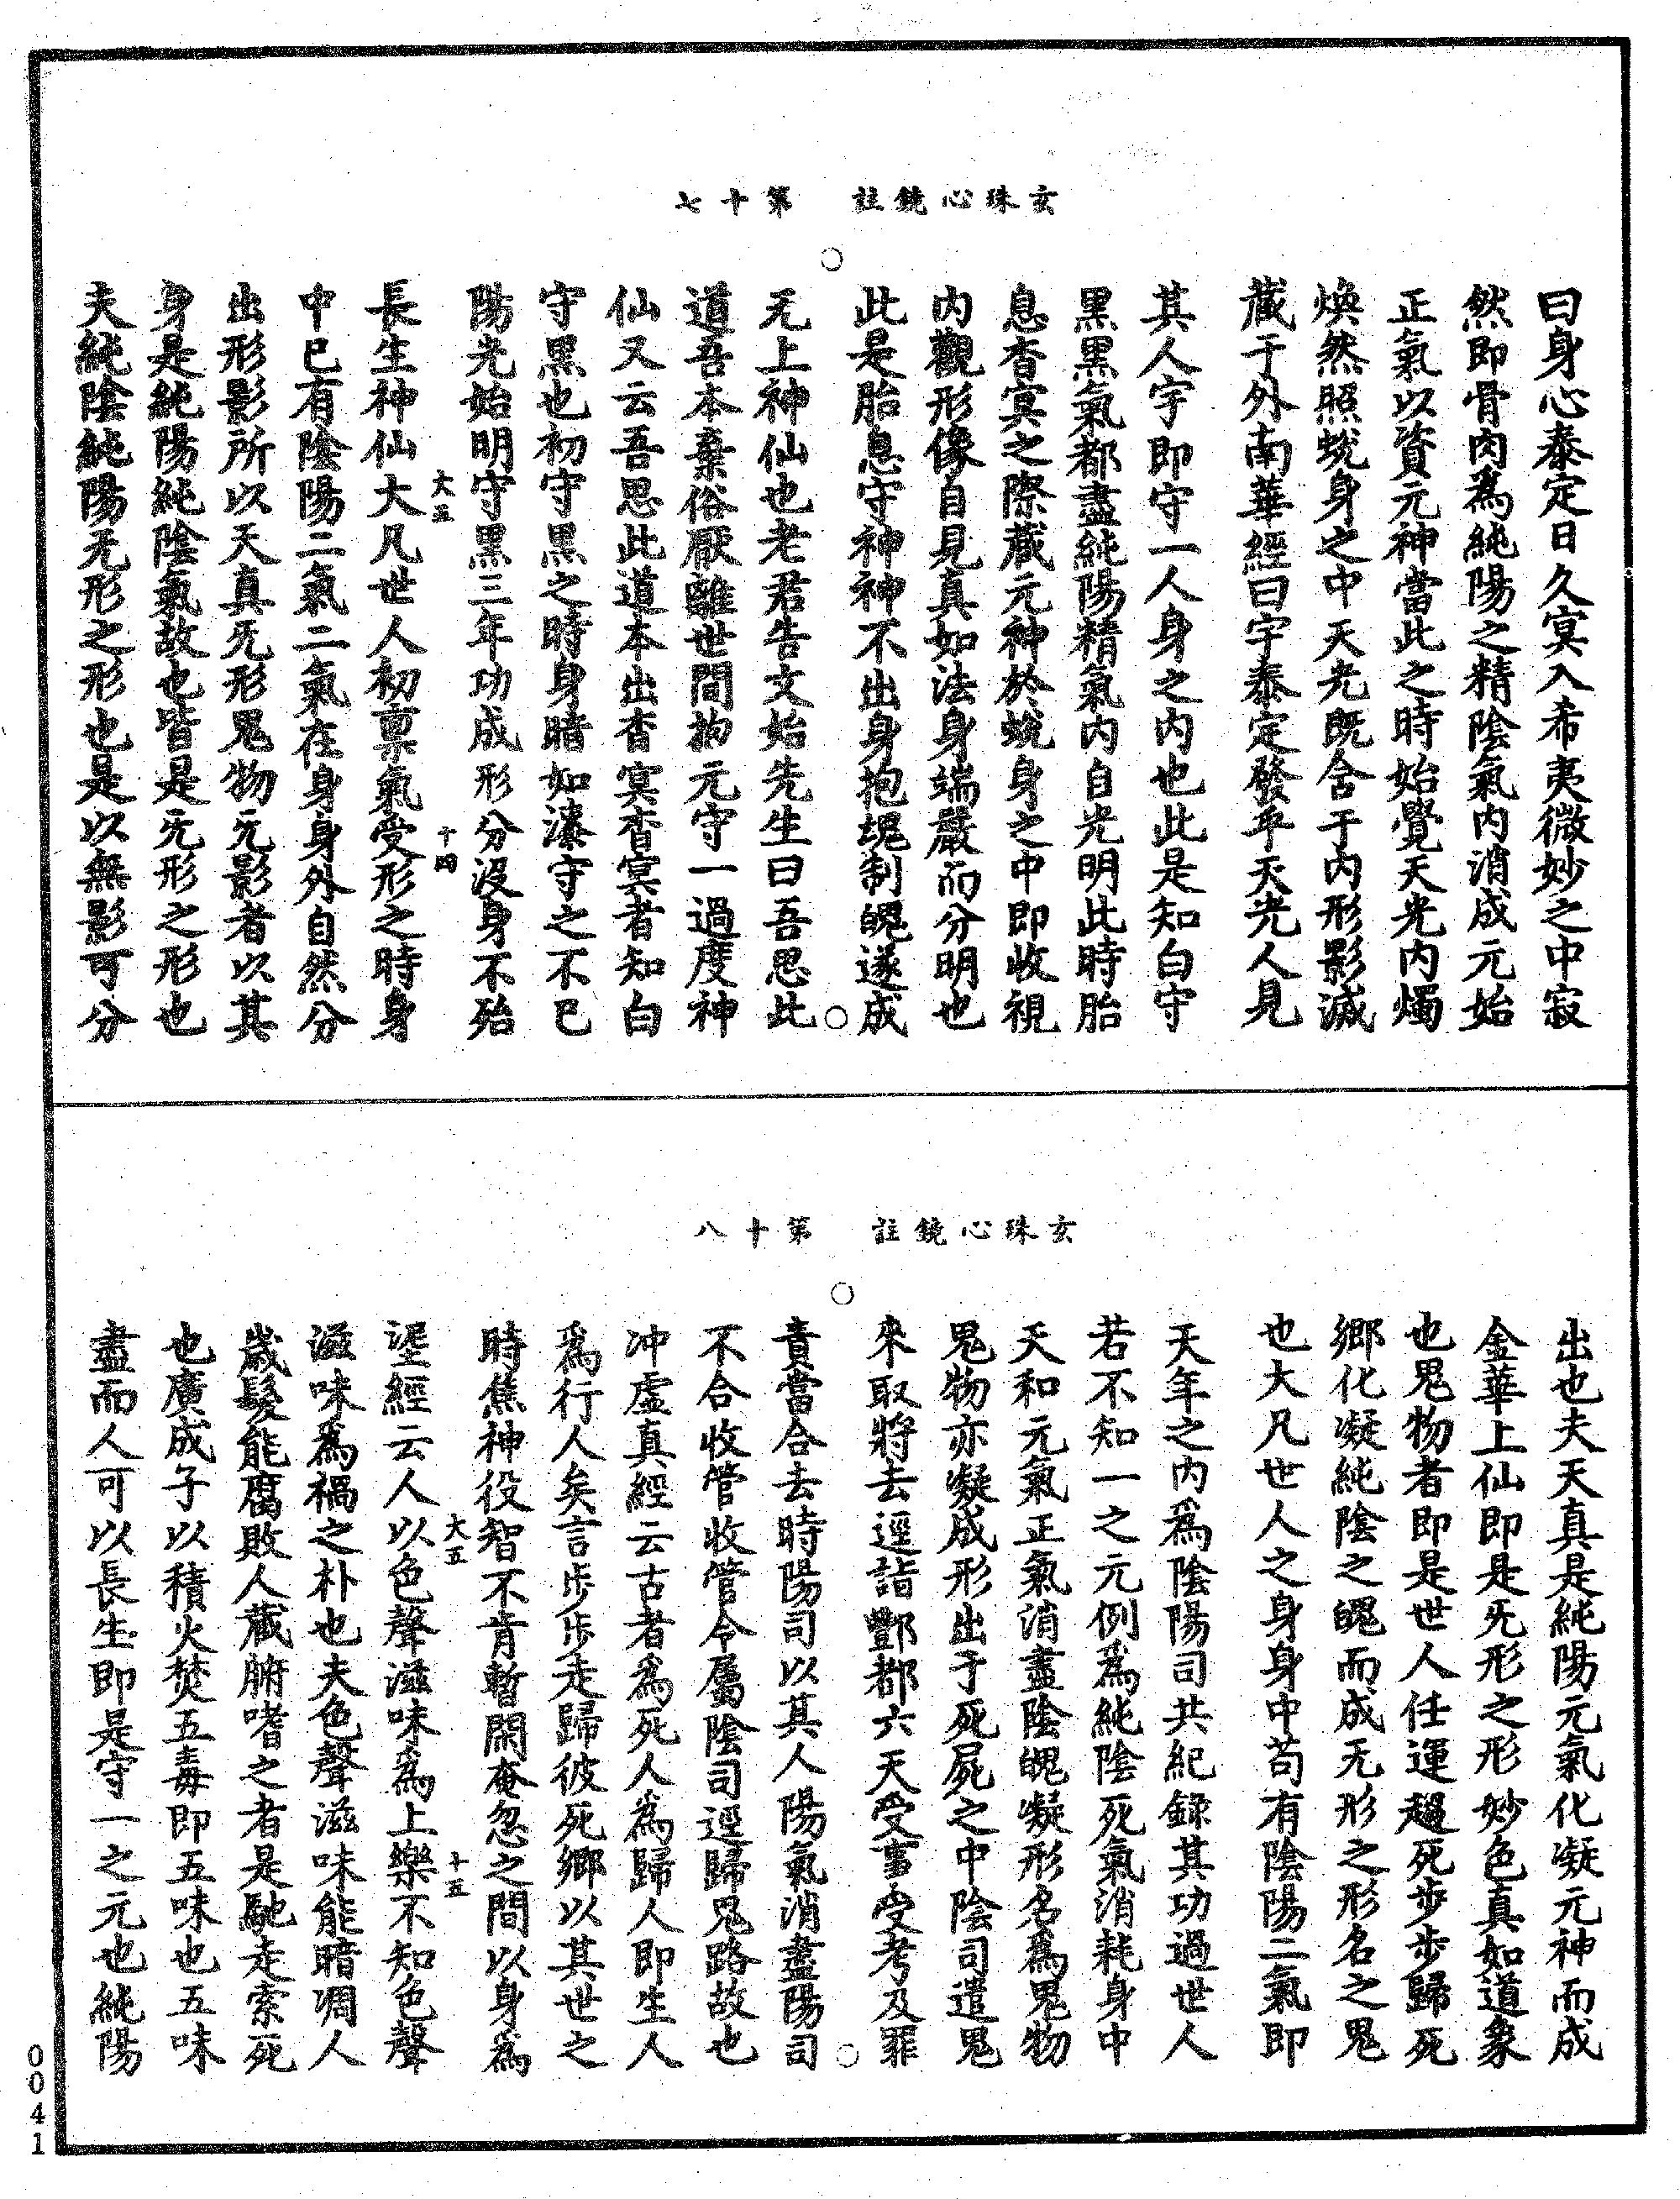 玄珠心鏡註　第十七
曰身心泰定日久冥入希夷微妙之中寂
然即骨肉爲純陽之精陰氣內消成元始
正氣以資元神當此之時始覺天光內燭
煥然照蛻身之中天光既含于內形影滅
藏于外南華經曰宇泰定發乎天光人見
其人宇即守一人身之內也此是知白守
黑黑氣都盡純陽精氣內自光明此時胎
息杳冥之際藏元神於蛻身之中即收視
內觀形像自見真如法身端嚴而分明也
此是胎息守神神不出身抱魂制魄遂成
无上神仙也老君告文始先生曰吾思此
道吾本棄俗厭離世間拘元守一過度神
仙又云吾思此道本出杳冥杳冥者知白
守黑也初守黑之時身暗如漆守之不已
陽光始明守黑三年功成形分沒身不殆
大五　十四
長生神仙大凡世人初稟氣受形之時身
中已有陰陽二氣二氣在身身外自然分
出形影所以天真无形鬼物无影者以其
身是純陽純陰氣故也皆是无形之形也
夫純陰純陽无形之形也是以無影可分
玄珠心鏡註　第十八
出也夫天真是純陽元氣化凝元神而成
金華上仙即是无形之形妙色真如道象
也鬼物者即是世人任運趨死步步歸死
鄉化凝純陰之魄而成无形之形名之鬼
也大凡世人之身身中苟有陰陽二氣即
天年之內爲陰陽司共紀錄其功過世人
若不知一之元例爲純陰死氣消耗身中
天和元氣正氣消盡陰魄凝形名爲鬼物
鬼物亦凝成形出于死屍之中陰司遣鬼
來取將去逕詣酆都六天受事受考及罪
責當合去時陽司以其人陽氣消盡陽司
不合收管收管令屬陰司逕歸鬼路故也
冲虛真經云古者爲死人爲歸人即生人
爲行人矣言步步走歸彼死鄉以其世之
時焦神役智不肯暫閑奄忽之間以身爲
大五　十五
𡋯經云人以色聲滋味爲上樂不知色聲
滋味爲禍之朴也夫色聲滋味能暗凋人
歲髮能腐敗人藏腑嗜之者是馳走索死
也廣成子以積火焚五毒即五味也五味
盡而人可以長生即是守一之元也純陽
0041